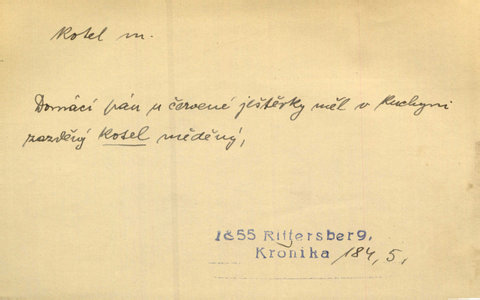 Kotel m.
Domácí pán u červené ještěrky měl v kuchyni
zazděný kotel měděný,
1855 Rittersberg,
Kronika 184, 5,